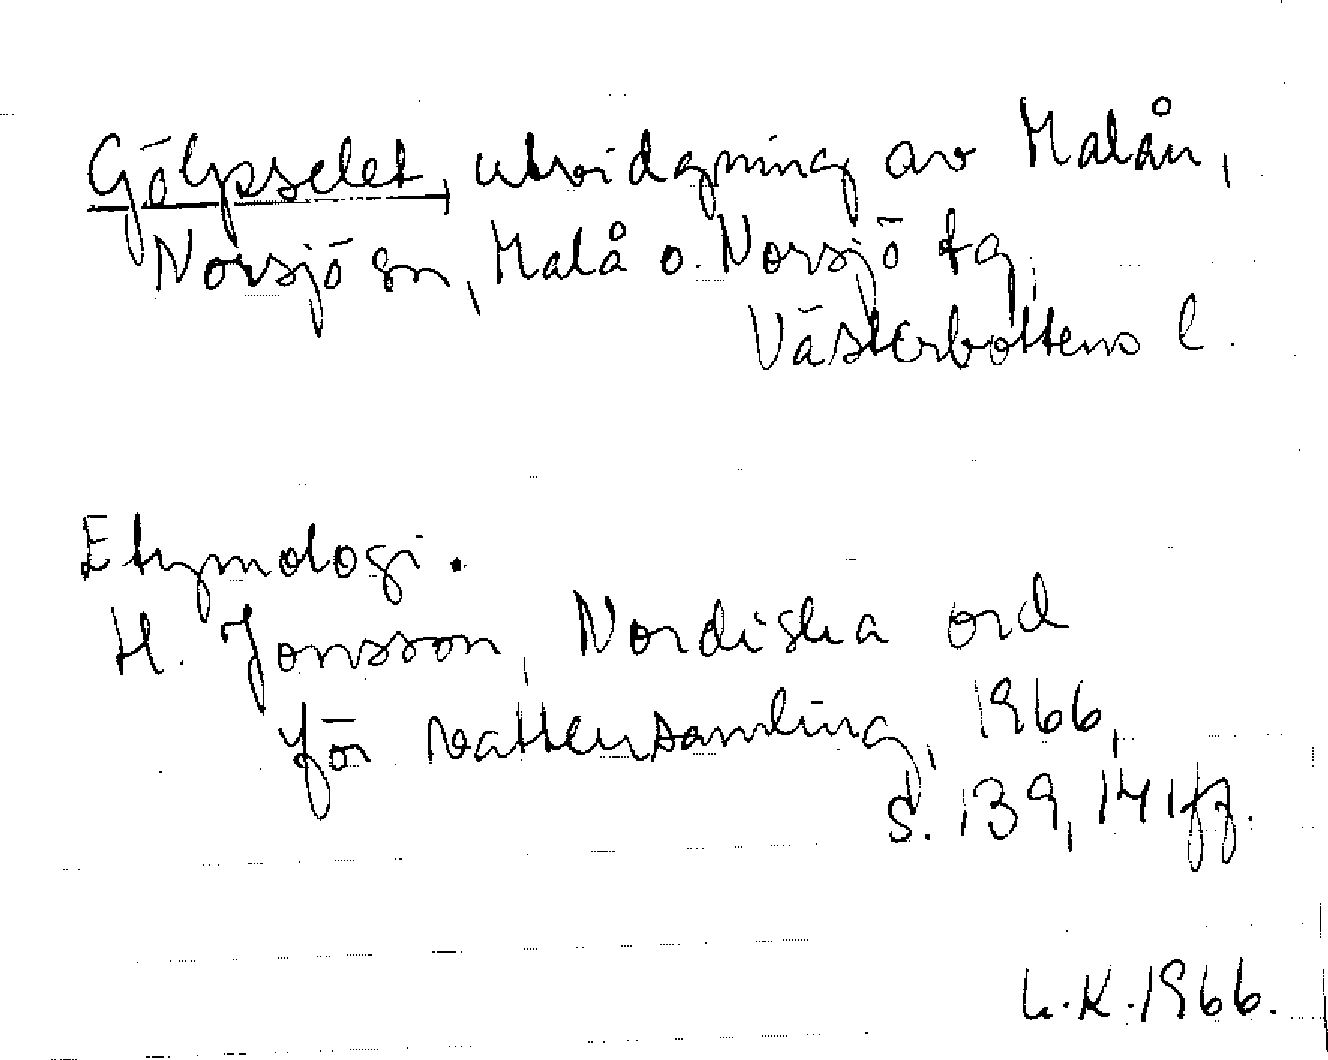 Gölpselet, utvidgning av Malån,
Norsjö sn, Malå o. Norsjö tg,
Västerbottens l.
Etymologi.
H. Jonsson, Nordiska ord
för vattensamling, 1966,
s. 139, 141ff.
L.K. 1966.